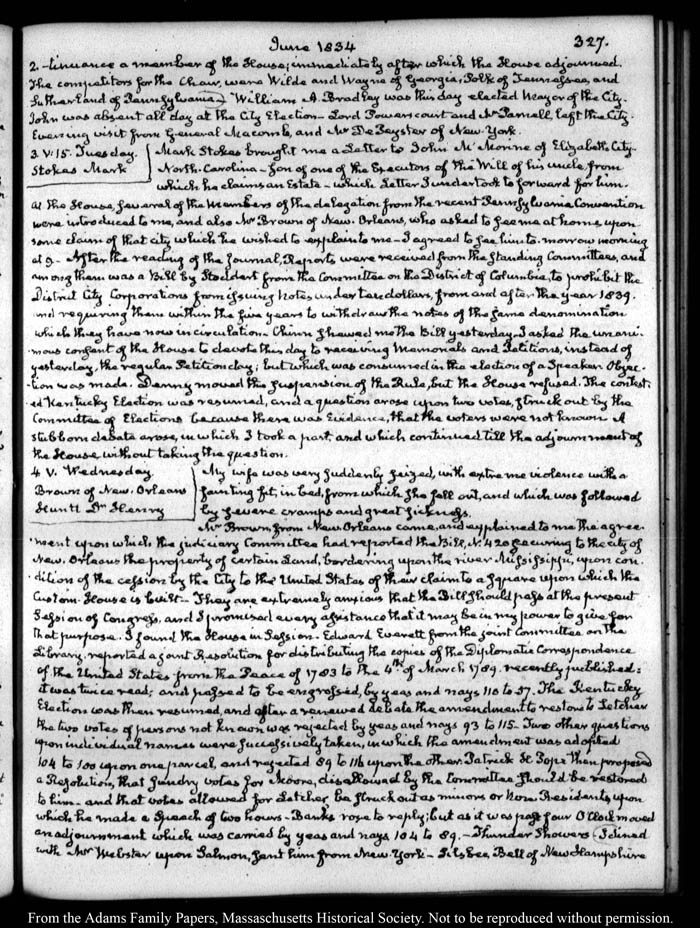 June 1834
327.
2. -tinuance a member of the House; immediately after which the House adjourned.
The competitors for the Chair, were Wilde and Wayne of Georgia, Polk of Tennessee, and
Sutherland of Pennsylvania - William A. Bradley was this day elected Mayor of the City.
John was absent all day at the City Election - Lord Powerscourt and Mr Parnell, left the City.
Evening visit from General Macomb, and Mr De Peyster of New-York.
3. V:15. Tuesday.
Stokes Mark
Mark Stokes brought me a Letter to John M Morine of Elizabeth City
North-Carolina - Son of one of the Executors of the Will of his uncle, from
which he claims an Estate - which Letter I undertook to forward for him.
At the House, several of the Members of the delegation from the recent Pennsylvania Convention
were introduced to me, and also Mr Brown of New-Orleans, who asked to see me at home, upon
some claim of that city which he wished to explain to me - I agreed to see him to-morrow morning
at 9 - After the reading of the Journal, Reports were received from the Standing Committees, and
among them was a Bill by Stoddert from the Committee on the District of Columbia, to prohibit the
District City Corporations from issuing Notes under ten dollars, from and after the year 1839.
and requiring them within the five years to withdraw the notes of the same denomination
which they have now in circulation - Chinn shewed me the Bill yesterday. I asked the unani-
mous consent of the House to devote this day to receiving Memorials and Petitions, instead of
yesterday, the regular Petition day; but which was consumed in the election of a Speaker. Objec-
-tion was made. Denny moved the suspension of the Rule, but the House refused. The contest-
ed Kentucky Election was resumed, and a question arose upon two votes, struck out by the
Committee of Elections because there was Evidence, that the voters were not known. A
stubborn debate arose, in which I took a part, and which continued till the adjournment of
the House, without taking the question.
4 V. Wednesday.
Brown of New. Orleans
Huntt Dr Henry
My wife was very suddenly seized, with extreme violence with a
fainting fit, in bed, from which she fell out, and which was followed
by severe cramps and great sickness.
Mr Brown, from New Orleans came, and explained to me the agree-
-ment upon which the judiciary Committee had reported the Bill, N. 420 securing to the city of
New-Orleans the property of certain Land, bordering upon the river Mississippi, upon con-
-dition of the cession by the City to the United States of their claim to a square upon which the
Custom-House is built - They are extremely anxious that the Bill should pass at the present
Session of Congress, and I promised every assistance that it may be in my power to give for
that purpose. I found the House in Session - Edward Everett from the joint Committee on the
Library, reported a joint Resolution for distributing the copies of the Diplomatic Correspondence
of the United States from the Peace of 1783 to the 4th of March 1789. recently published:
it was twice read; and passed to be engrossed, by yeas and nays 110 to 57. The Kentucky
Election was then resumed, and after a renewed debate the amendment to restore to Letcher
the two votes of persons not known was rejected by yeas and nays 93 to 115 - Two other questions
upon individual names were successively taken, in which the amendment was adopted
104 to 100 upon one parcel, and rejected 89 to 116 upon the other. Patrick H. Pope then proposed
a Resolution, that sundry votes for Moore, disallowed by the Committee should be restored
to him - and that votes allowed for Letcher, be struck out as minors or Non-Residents, upon
which he made a Speech of two hours - Banks rose to reply; but as it was past four O'Clock moved
an adjournment which was carried by yeas and nays 104 to 89. - Thunder Showers - I dined
with Mr Webster upon Salmon, sent him from New-York - Silsbee, Bell of New Hampshire
From the Adams Family Papers, Massachusetts Historical Society. Not to be reproduced without permission.